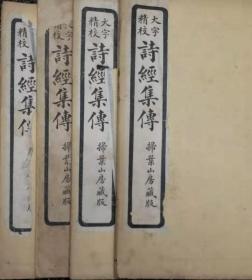 大字
精校
詩經集傳
掃葉山房藏版
大字
精校
詩經集傳
掃葉山房藏版
精校
詩經集傳
掃葉山房藏版
精校
詩經集傳